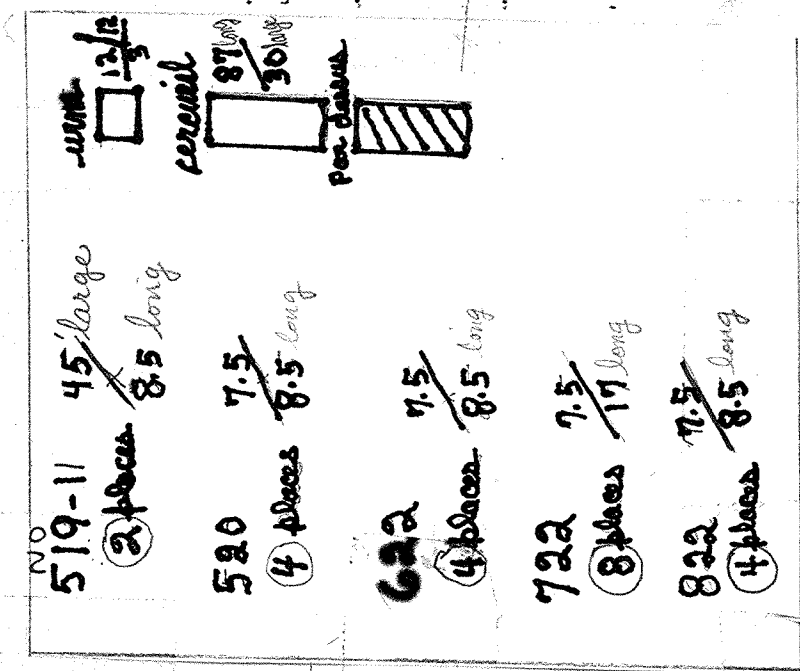 NO
519-11 45 large
2 places 8.5 long
520 7.5
4 places 8.5 long
622 7.5
4 places 8.5 long
722 7.5
8 places 17 long
822 7.5
4 places 8.5 long
urne 12/12
3
cercuil 87 long
30 large
par dessus